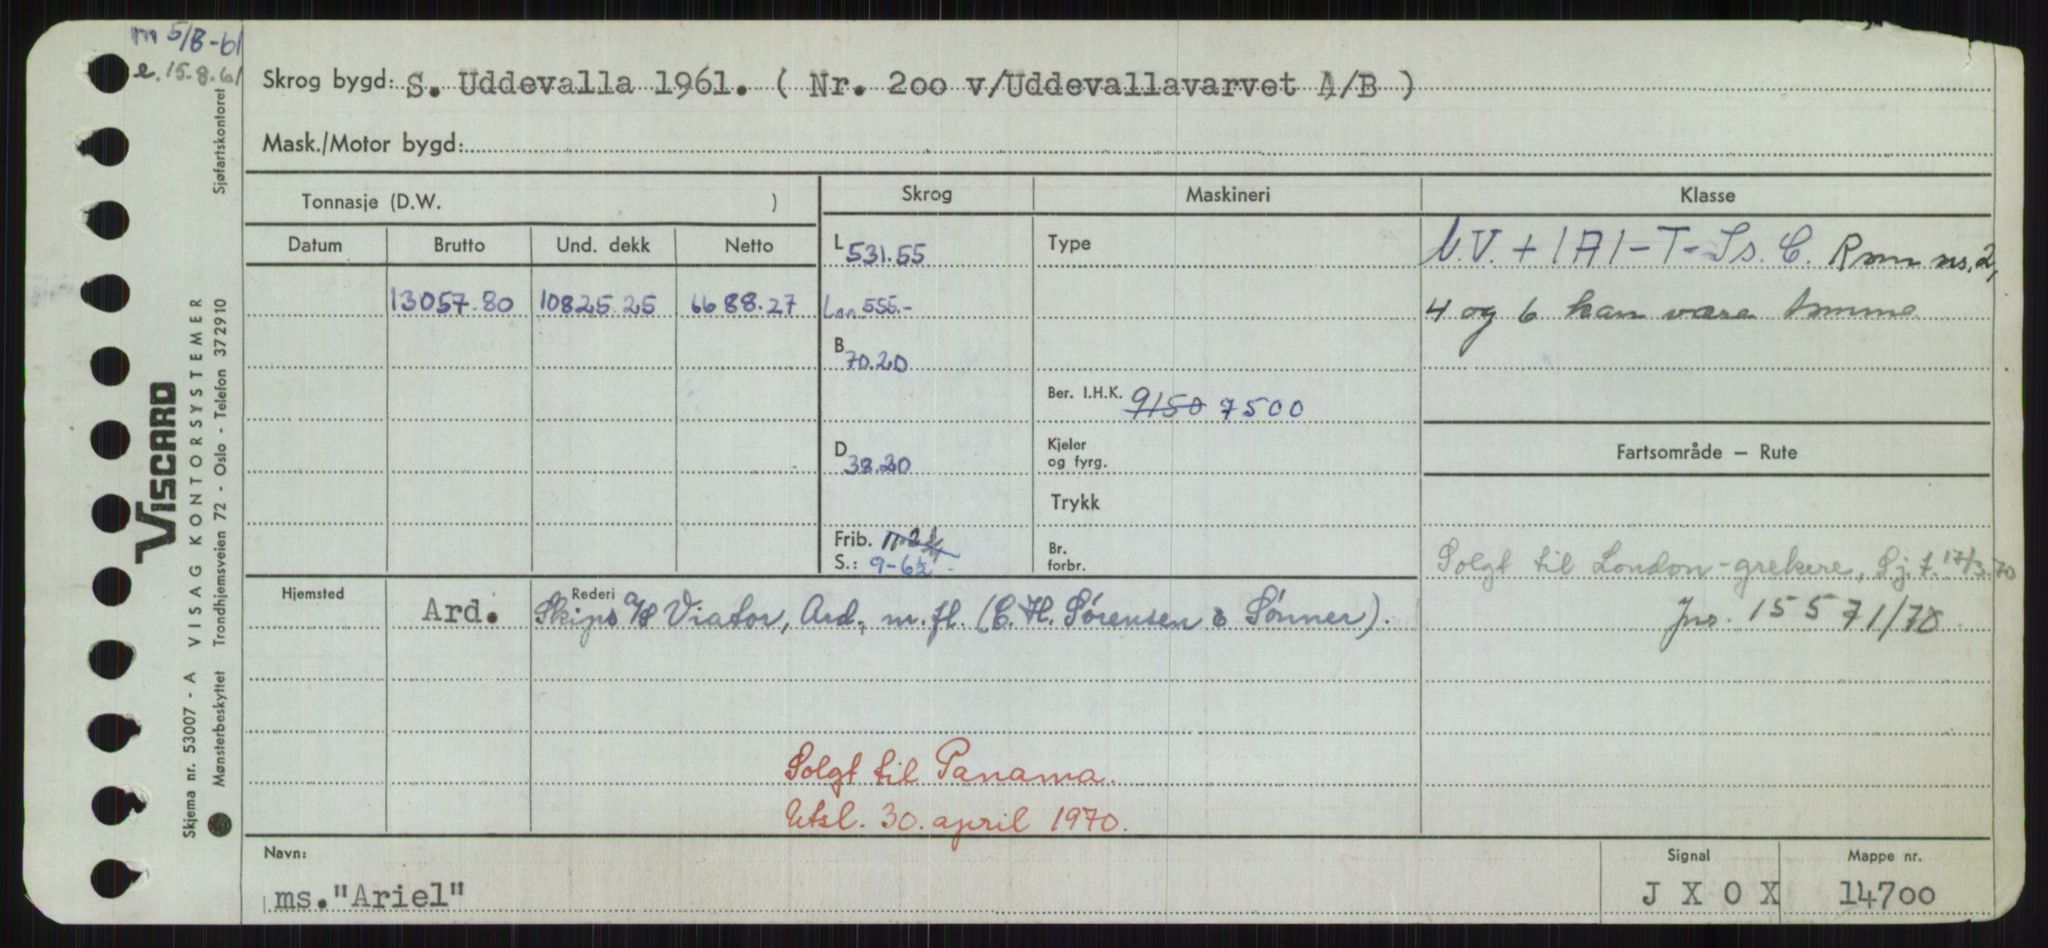 m 5/8-61
e. 15.8.61
Skrog bygd: S. Uddevalla 1961. ( Nr. 200 v/Uddevallavarvet A/B )
Mask./Motor bygd:
Tonnasje (D.W. )
Skrog
Maskineri
Klasse
Datum Brutto Und. dekk Netto
L 531.55
Type
V. + 1A1-T-Is. C. Rom nr. 2,
13057.80 10825.25 6688.27
555.-
4 og 6 kan være tomme
B 70.20
Ber. I.H.K. 9150 7500
D 38.20
Kjeler
og fyrg.
Fartsområde – Rute
Trykk
Frib.
S.: 9-6½
Br.
forbr.
Solgt til London-grekere, Sj.f. 17/3-70
Jnr. 15571/70
Hjemsted
Ard.
Rederi
Skips A/S Viator, Ard, m.fl. (C.H. Sørensen & Sønner).
Solgt til Panama.
Utsl. 30. april 1970.
Navn:
ms."Ariel"
Signal
J X O X
Mappe nr.
14700
VISCARD
Skjema nr. 53007 - A VISAG KONTORSYSTEMER
Mønsterbeskyttet Trondhjemsveien 72 - Oslo - Telefon 372910 Sjøfartskontoret